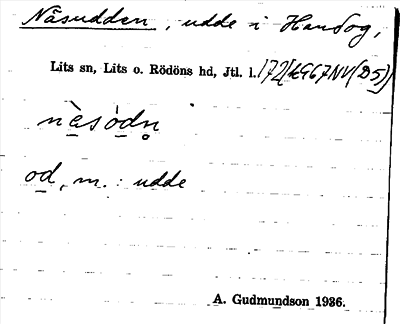 Näsudden, udde i Handog,
Lits sn, Lits o. Rödöns hd, Jtl. l. 172
nàsódn̥
od, m.: udde
A. Gudmundson 1936.